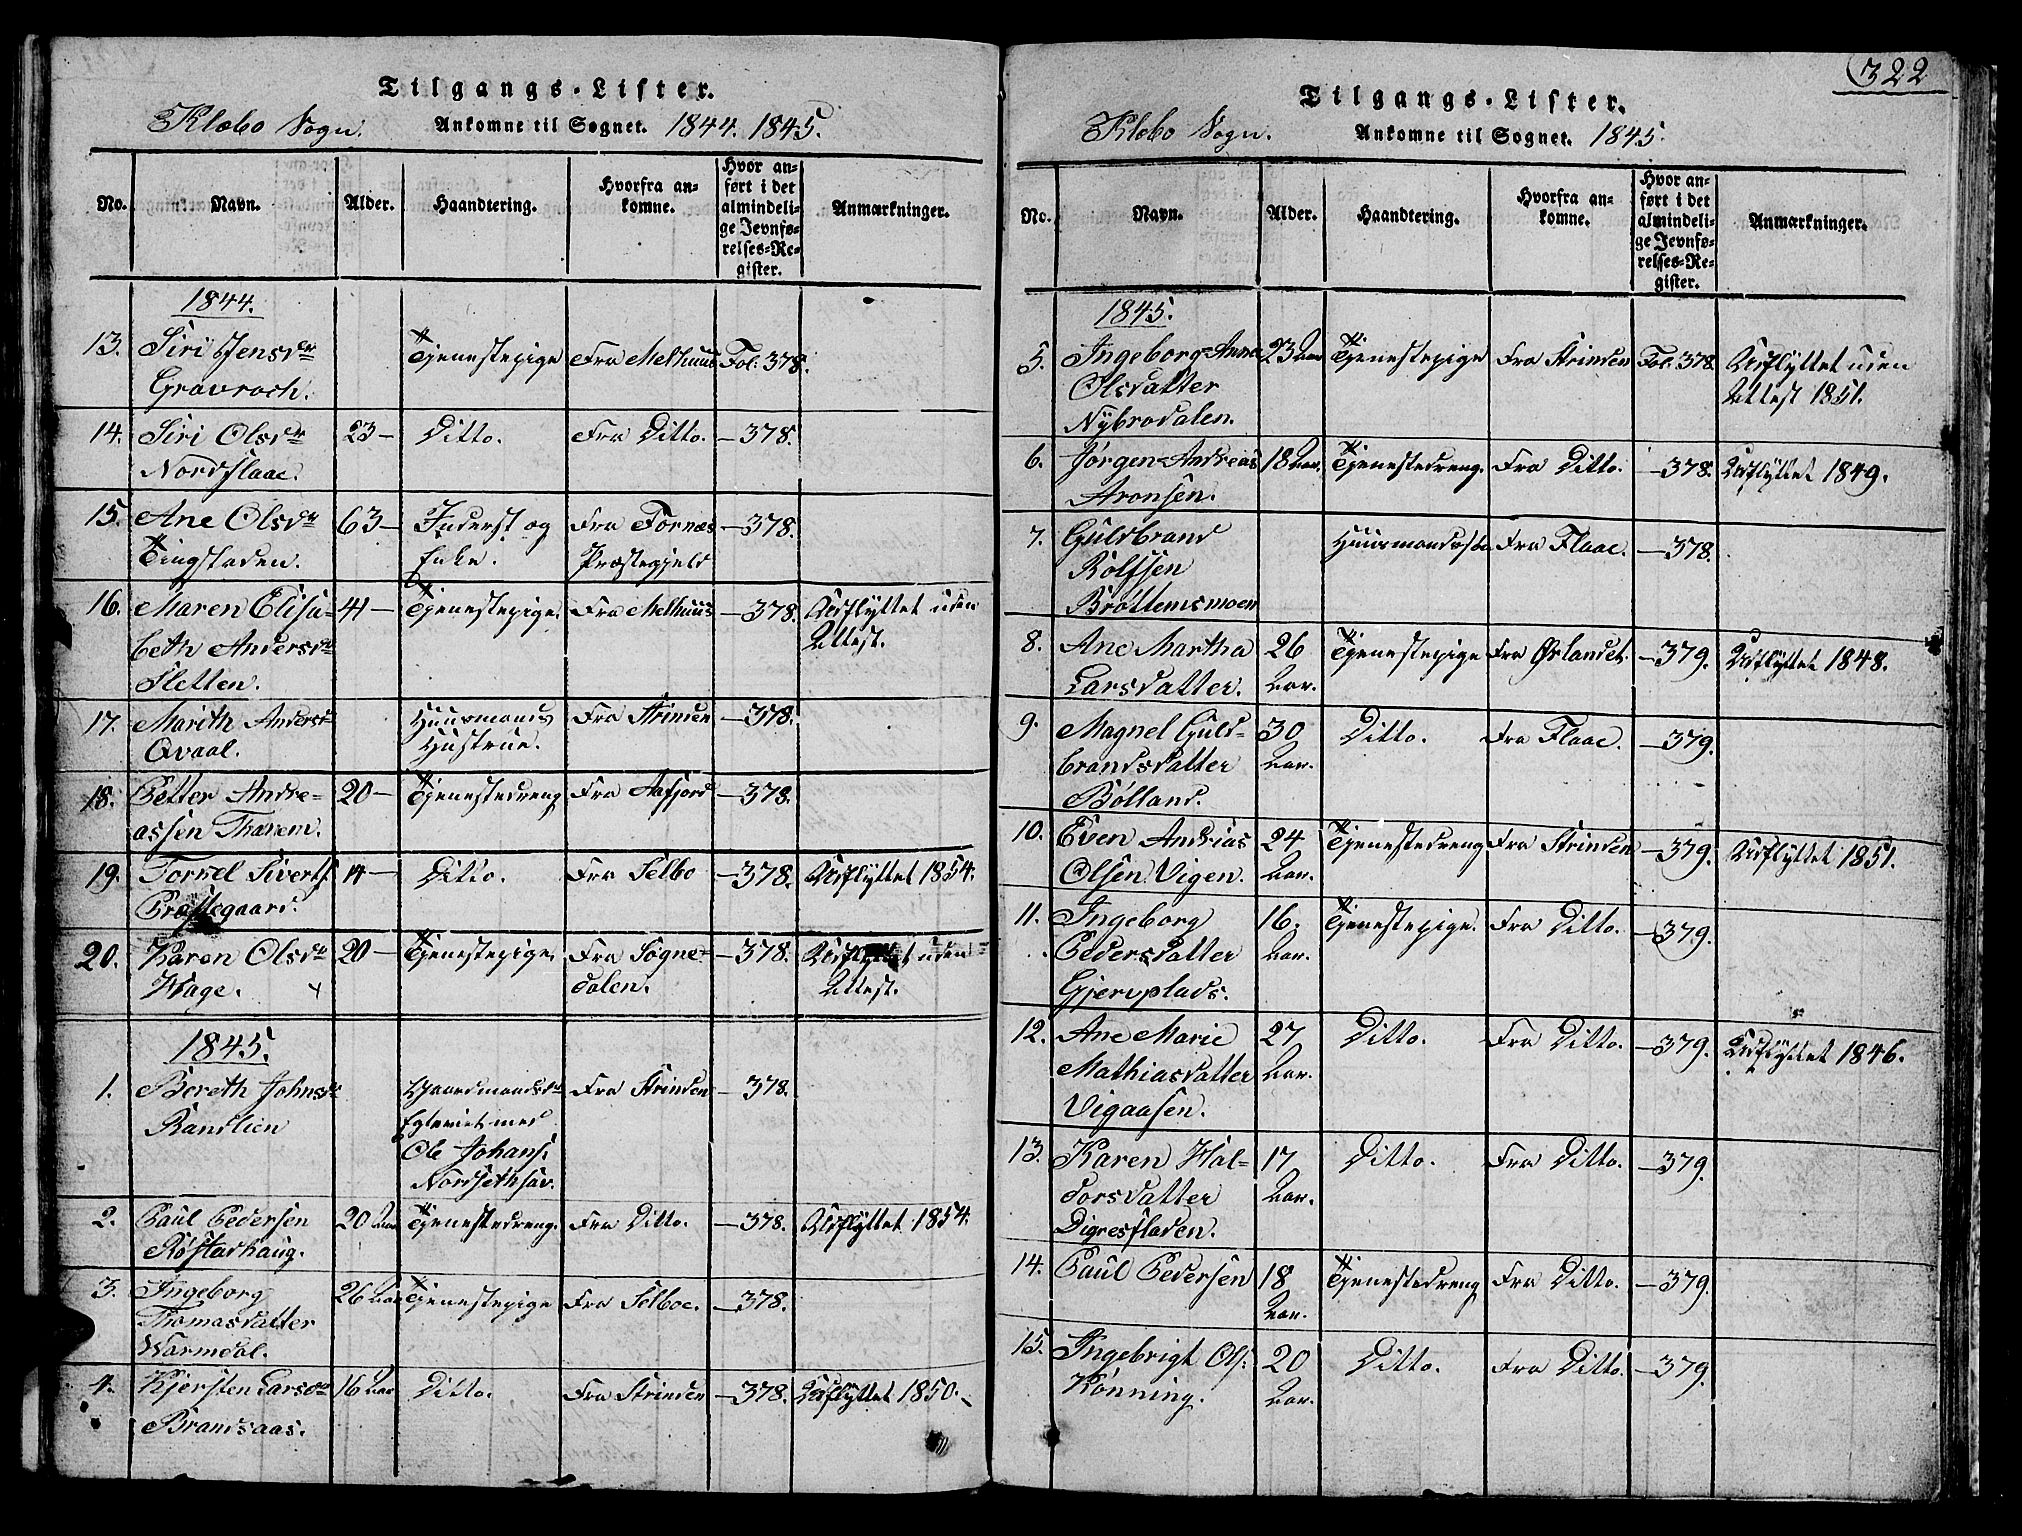 Tilgangs-Lister.
Klæbo Sogn. Ankomne til Sognet. 1844. 1845.
No. Navn. Alder. Haandtering. Hvorfra ankomne. Hvor anført i det almindelige Jevnførelses-Register. Anmærkninger.
1844.
13. Siri Jensdr Tjenestepige Fra Melhuus Fol: 378.
Gravraak.
14. Siri Olsdr 23 — Ditto. Fra Ditto. — 378.
Nordflaae.
15. Ane Olsdr 63 — Inderst og Fra Fornæs — 378.
Tingstaden. Enke. Præstegjeld
16. Maren Elisa- 41 — Tjenestepige. Fra Melhuus — 378. Udflyttet uden
beth Andersdr Attest.
Sletten.
17. Marith Andersdr Huusmands Fra Strinden — 378.
Qvaal. Hustrue.
18. Petter Andre- 20 — Tjenestedreng Fra Aafjord — 378.
assen Thanem.
19. Torrel Siverts. 14 — Ditto. Fra Selbo — 378. Udflyttet 1854.
Præstegaard.
20. Karen Olsdr 20 — Tjenestepige. Fra Sogne- — 378. Udflyttet uden
Wage. dalen. Attest.
1845.
1. Bereth Johnsdr Gaardmandsdr Fra Strinden — 378.
Ranslien Egteviet med
Ole Johans.
Nordsethsav.
2. Paul Pedersen 20 Aar Tjenestedreng. Fra Ditto. — 378. Udflyttet 1854.
Røstadhaug.
3. Ingeborg 26 Aar Tjenestepige Fra Selboe. — 378.
Thomasdatter
Warmdal.
4. Kjersten Larsdr 16 Aar Ditto. Fra Strinden — 378. Udflyttet 1850.
Brandsaas.
322
Tilgangs-Lister.
Klæbo Sogn. Ankomne til Sognet. 1845.
No. Navn. Alder. Haandtering. Hvorfra ankomne. Hvor anført i det almindelige Jevnførelses-Register. Anmærkninger.
1845.
5. Ingeborg Anna 23 Aar Tjenestepige Fra Strinden Fol: 378. Udflyttet uden
Olsdatter Attest 1851.
Nybrodalen.
6. Jørgen Andreas 18 Aar. Tjenestedreng. Fra Ditto. — 378. Udflyttet 1849.
Aronsen.
7. Guldbrand Huusmand Fra Flaae. — 378.
Rolfsen
Brøttemsmoen
8. Ane Martha 26 Tjenestepige Fra Ørlandet. — 379. Udflyttet 1848.
Larsdatter. Aar.
9. Magnel Guld- 30 Ditto. Fra Flaae. — 379.
brandsdatter Aar.
Bølland.
10. Even Andreas 24 Tjenestedreng Fra Strinden — 379. Udflyttet 1851.
Olsen Vigen. Aar.
11. Ingeborg 16. Tjenestepige. Fra Ditto. — 379.
Pedersdatter Aar.
Gjervplads.
12. Ane Marie 27 Ditto. Fra Ditto. — 379. Udflyttet 1846.
Mathiasdatter Aar.
Vigaasen.
13. Karen Hal- 17 Ditto. Fra Ditto. — 379.
dorsdatter Aar.
Digresfladen.
14. Paul Pedersen 18 Tjenestedreng Fra Ditto. — 379.
Aar.
15. Ingebrigt Ols. 20 Ditto. Fra Ditto. — 379.
Rønning. Aar.